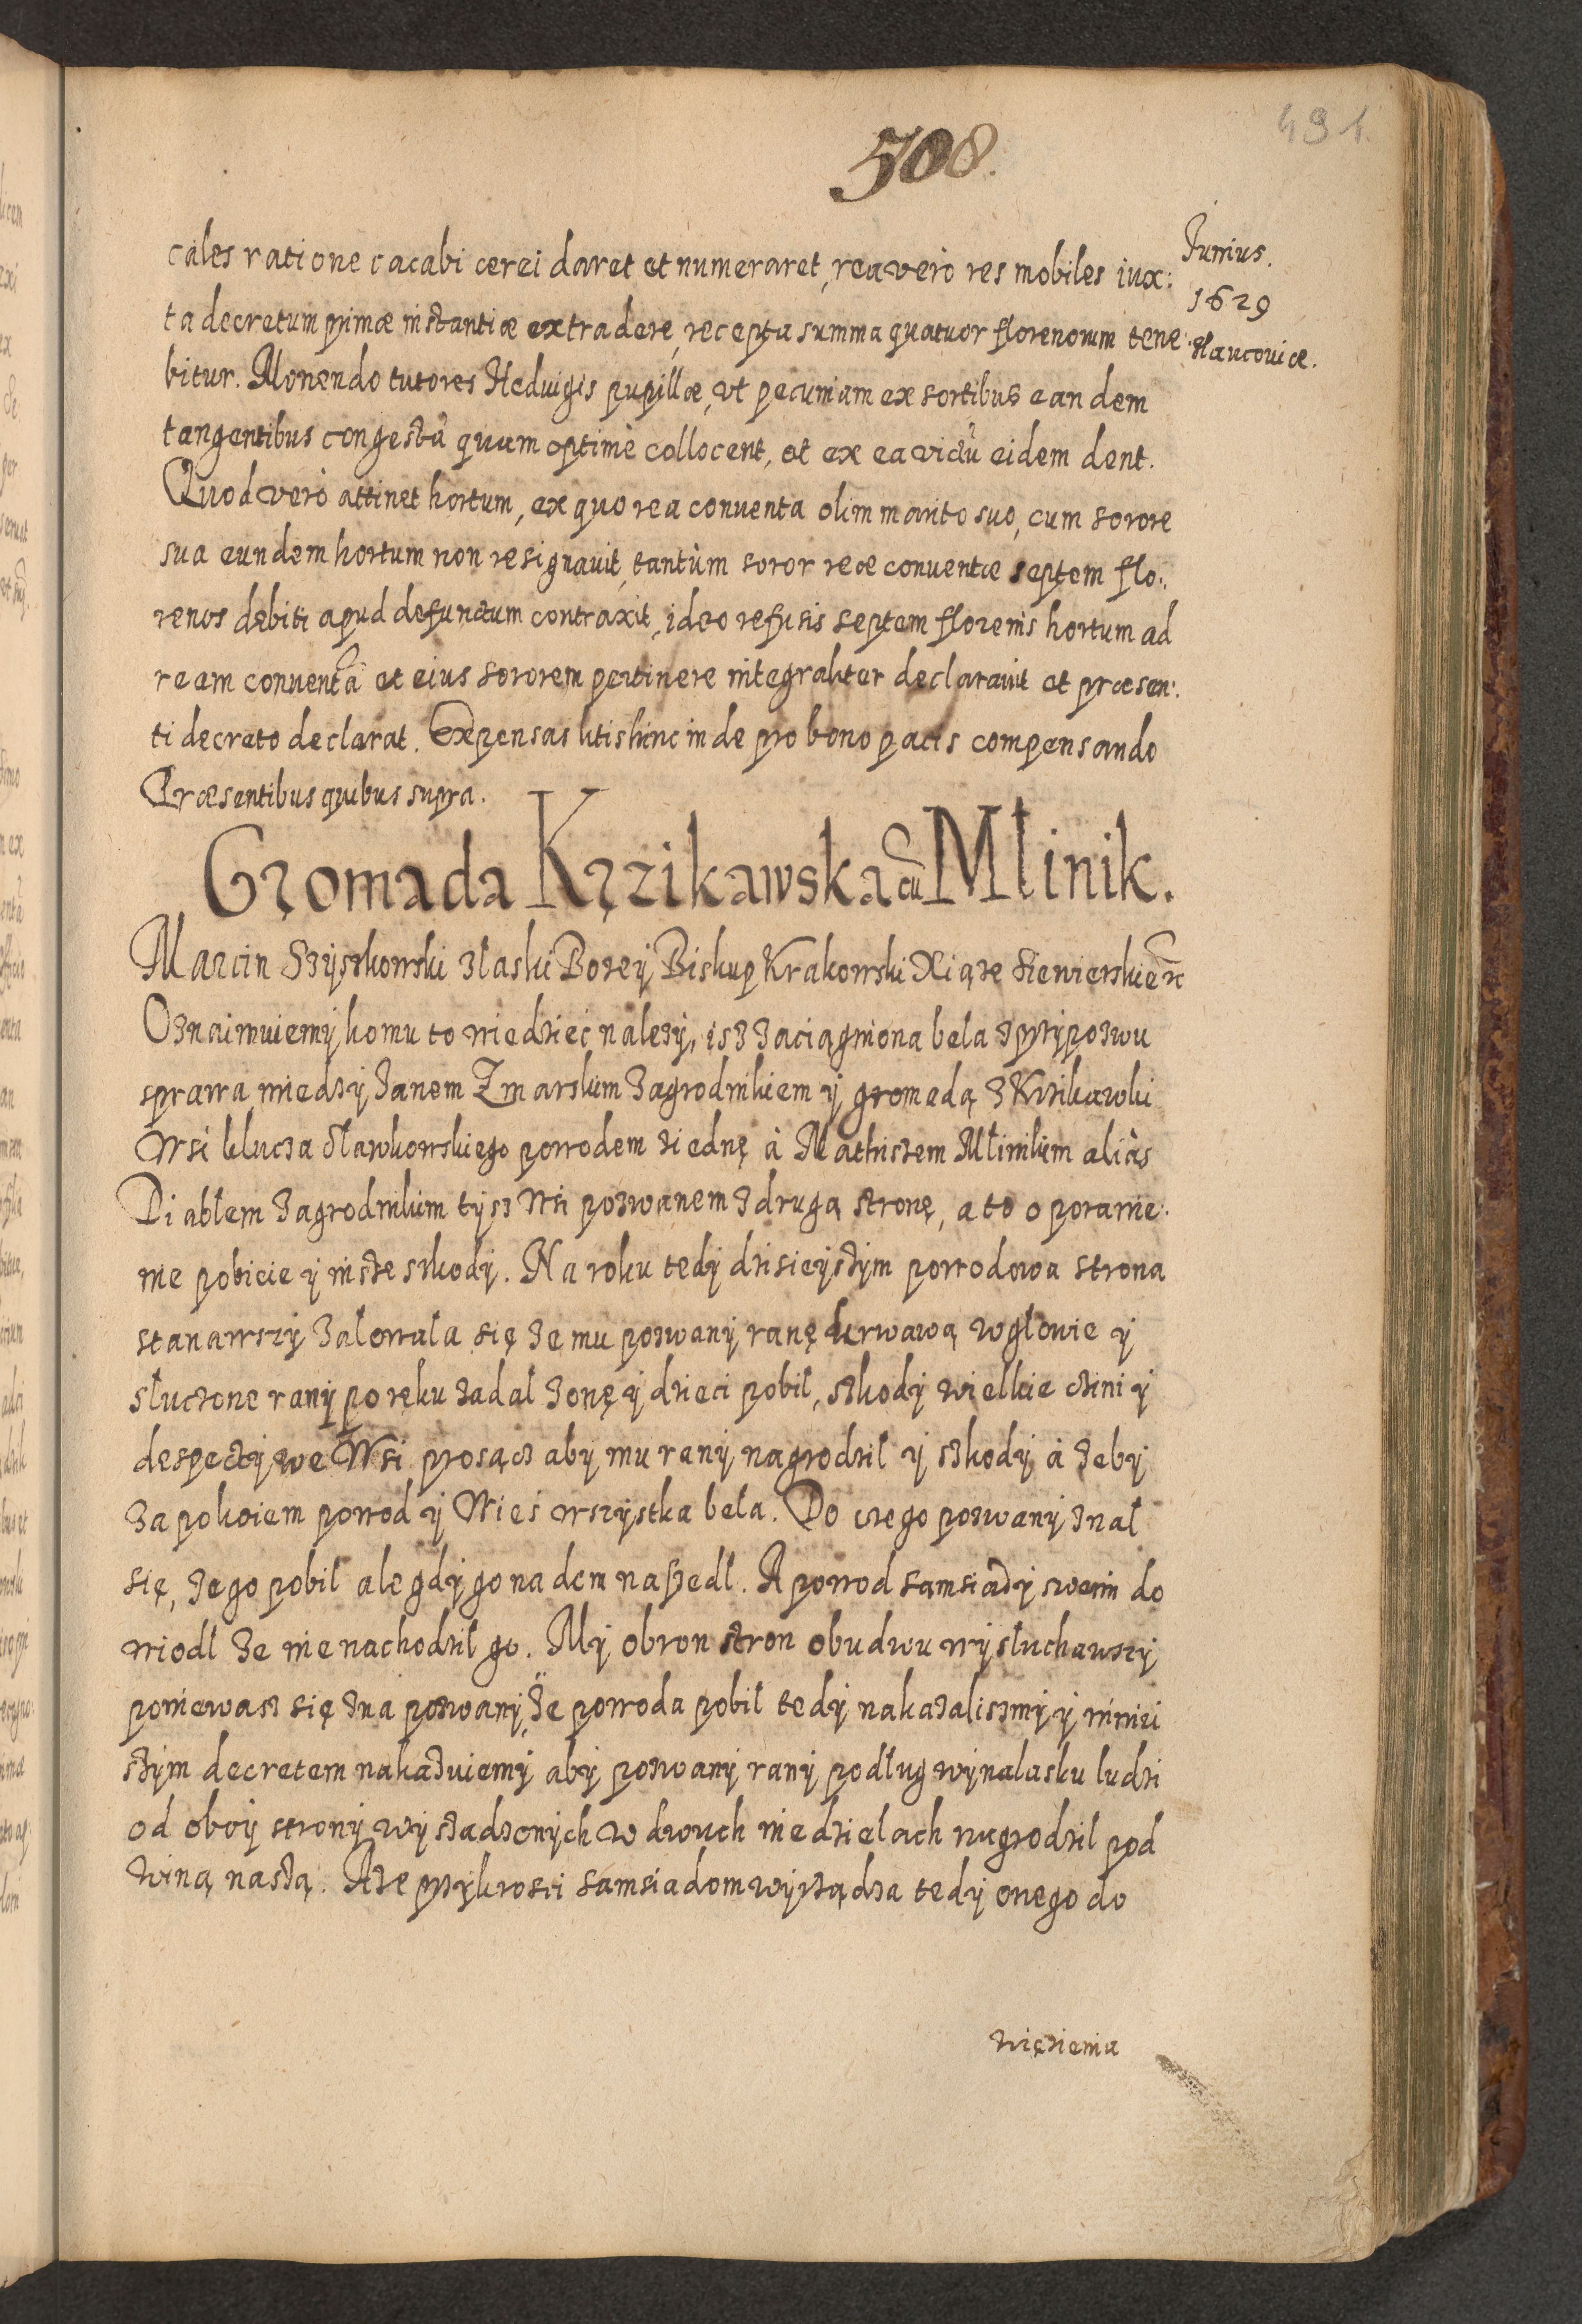 508.
491.
Junius.
1629
Slaucoviæ.
cales ratione cacabi cerei daret et numeraret, rea verò res mobiles iux:
ta decretum primæ instantiæ extradere, recepta summa quatuor florenorum tene:
bitur. Monendo tutores Hedvigis pupillæ, vt pecuniam ex sortibus eandem
tangentibus congestã quam optimè collocent, et ex ea victũ eidem dent.
Quod verò attinet hortum, ex quo rea conventa olim marito suo, cum sorore
sua eundem hortum non resignavit, tantùm soror reæ conventæ septem flo:
renos debiti apud defunctum contraxit, ideo refusis septem florenis hortum ad
ream conventã et eius sororem pertinere integraliter declaravit et præsen:
ti decreto declarat. Expensas litis hinc inde pro bono pacis compensando
Præsentibus quibus supra.
Gromada Krzikawska cũ Mlinik.
Marcin Szyszkowski z łaski Bożey Biskup Krakowski Xiąże Siewierskie
Oznaimuiemy komu to wiedzieć należy, isz zaciągniona bela z przypozwu
sprawa miedzy Janem Zmarskim zagrodnikiem y gromadą z Krzikawki
Wsi klucza Sławkowskiego powodem z iednę à Mathiszem Młinikim aliàs
Diabłem zagrodnikim tysz Wsi pozwanem z drugą stronę, a to o poranie:
nie pobicie y insze szkody. Na roku tedy dzisieyszym powodowa strona
stanawszy załowała się że mu pozwany ranę krwawą w głowie y
słuczone rany po ręku zadał żonę y dzieci pobił, szkody wielkie czini y
despecty we Wsi prosącz aby mu rany nagrodził y szkody à żeby
za pokoiem powod y Wieś wszystka beła. Do czego pozwany znał
się, że go pobił ale gdy go na dem naszedł. A powod samsiady swemi do
wiodł że nie nachodził go. My obron stron obudwu wysłuchawszy
poniewasz się zna pozwany że powoda pobił tedy nakazaliszmy y ninieiszym
decretem nakazuiemy aby pozwany rany podług wynalasku ludzi
od oboy strony wysadzonych w dwuch niedzielach nagrodził pod
winą naszą. A że przykrości samsiadom wyrządza tedy onego do
więzienia